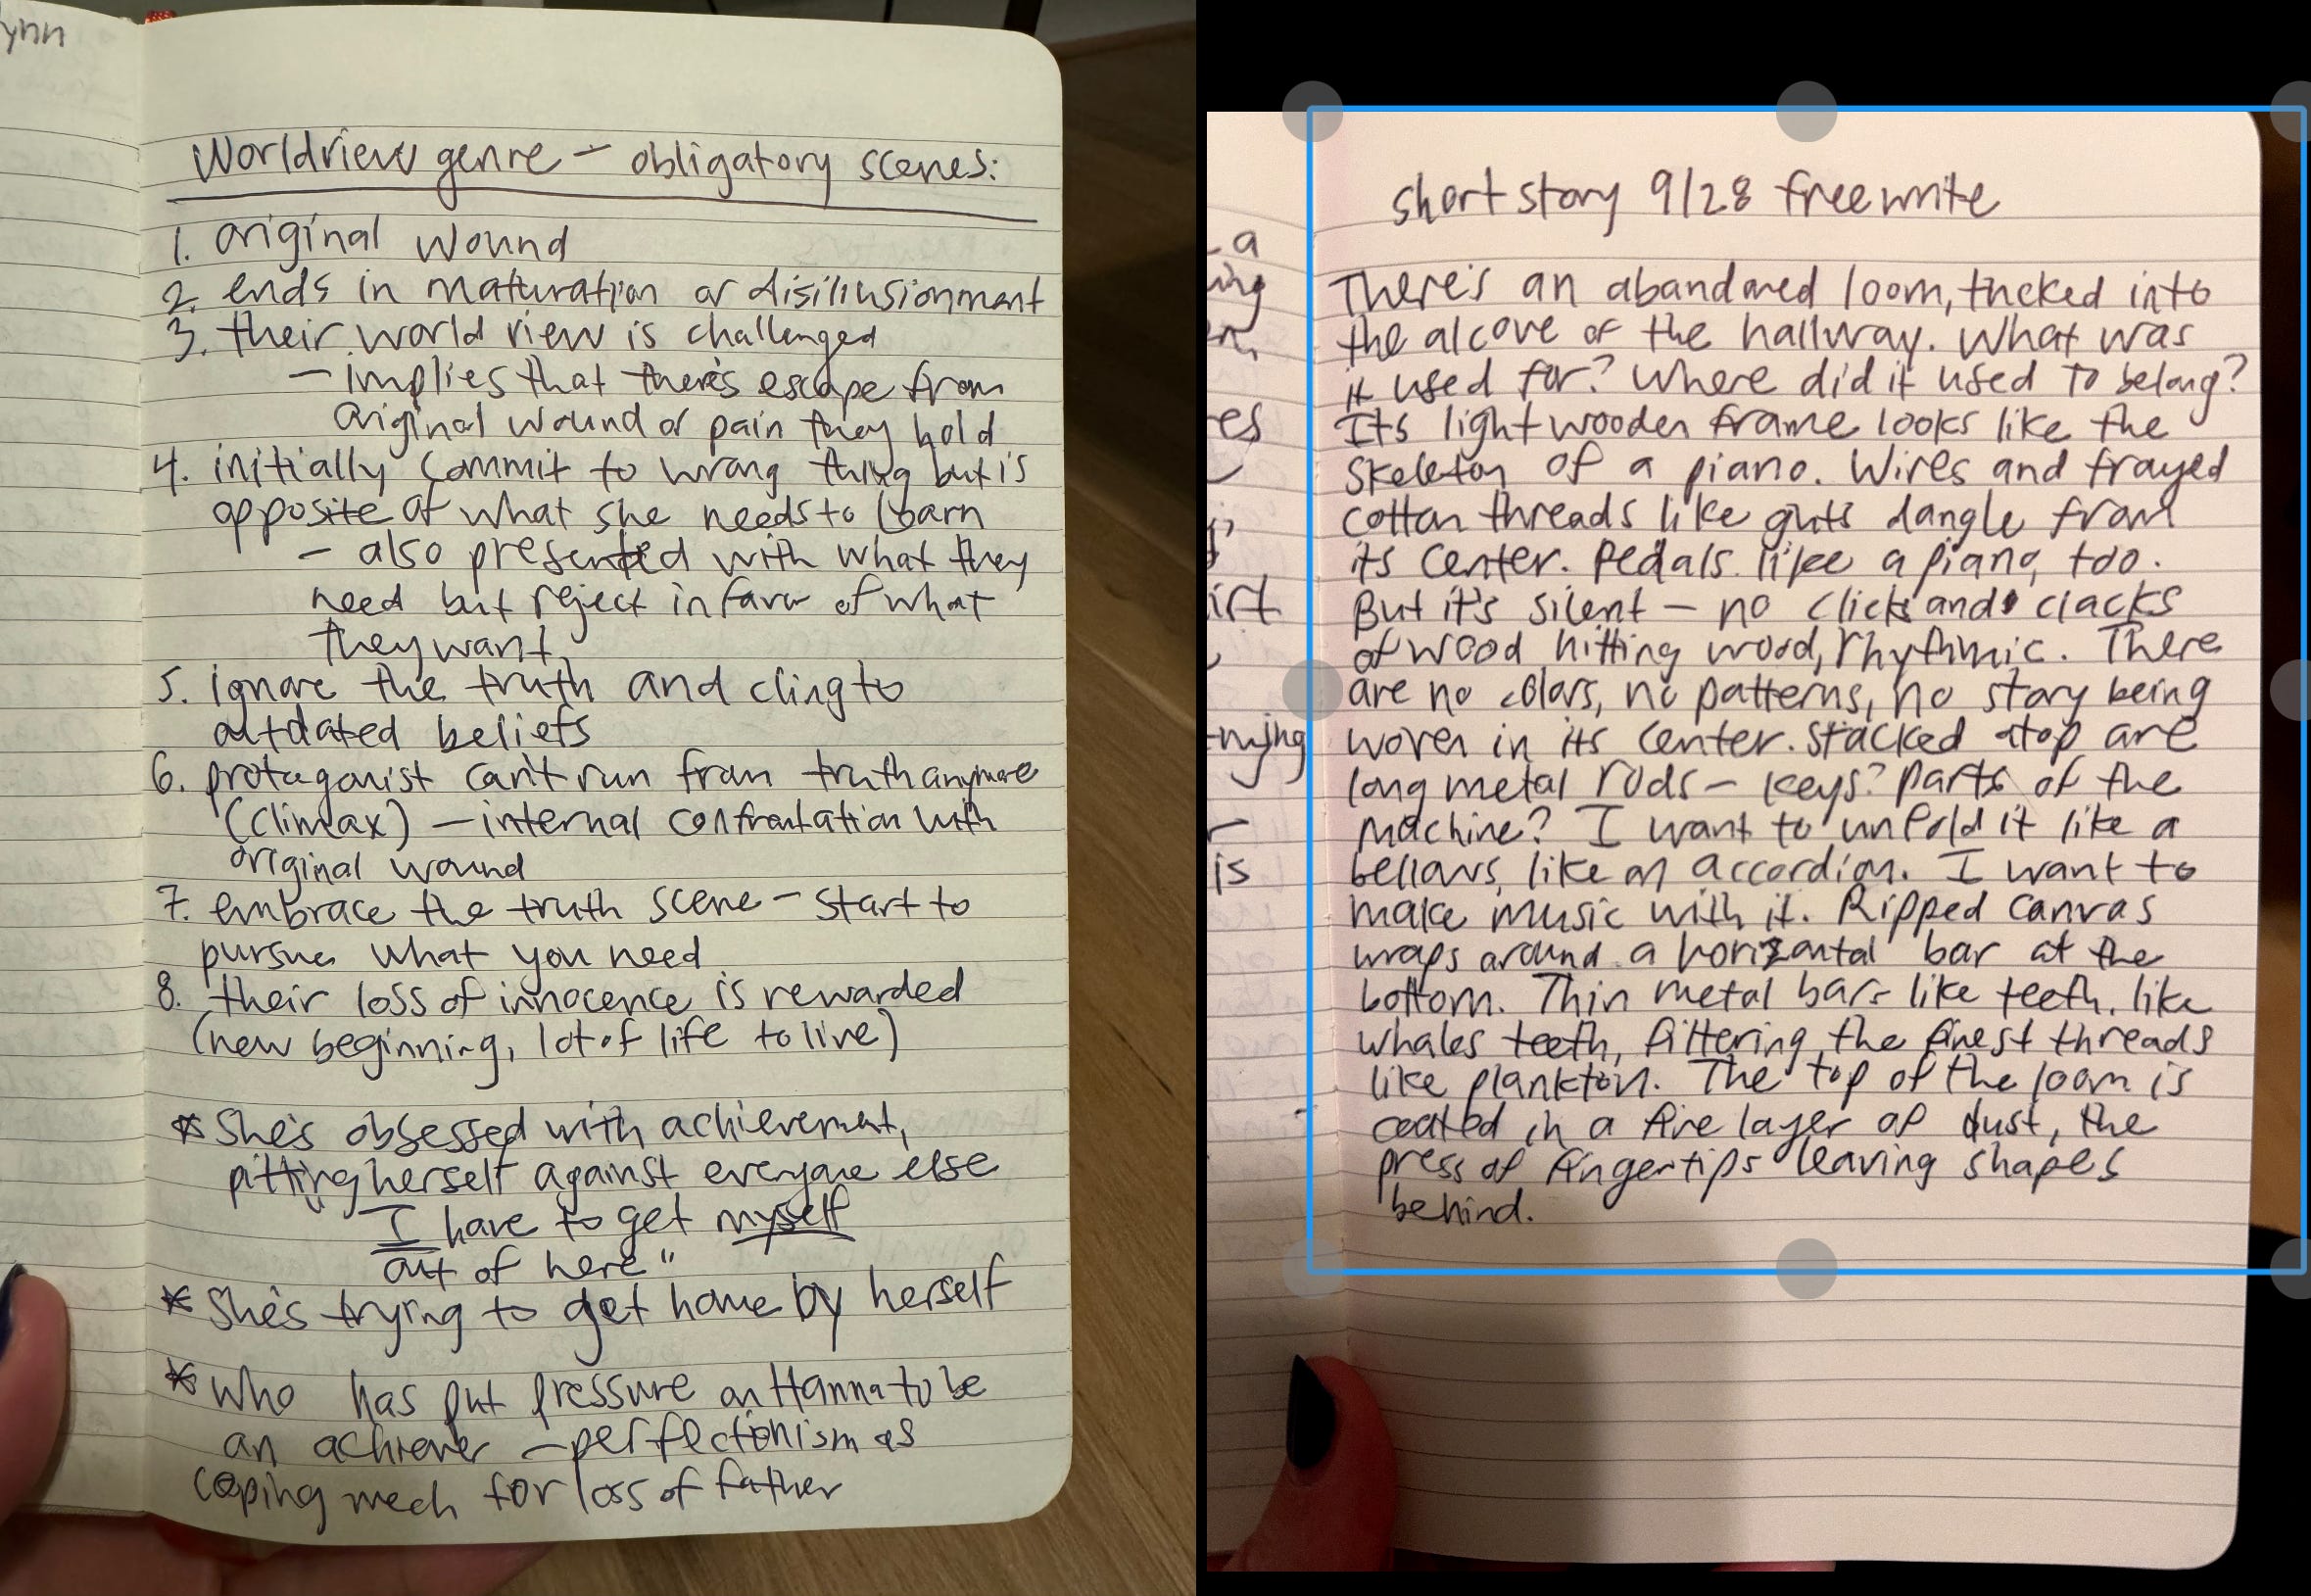 ynn
Worldview genre – obligatory scenes:
1. original wound
2. ends in maturation or disillusionment
3. their world view is challenged
– implies that there's escape from
original wound or pain they hold
4. initially commit to wrong thing but is
opposite of what she needs to learn
– also presented with what they
need but reject in favor of what
they want
5. ignore the truth and cling to
outdated beliefs
6. protagonist can't run from truth anymore
(climax) – internal confrontation with
original wound
7. embrace the truth scene – start to
pursue what you need
8. their loss of innocence is rewarded
(new beginning, lot of life to live)
* She's obsessed with achievement,
pitting herself against everyone else
I have to get myself
out of here"
* She's trying to get home by herself
* who has put pressure on Hanna to be
an achiever – perfectionism as
coping mech for loss of father
short story 9/28 freewrite
There's an abandoned loom, tucked into
the alcove of the hallway. What was
it used for? Where did it used to belong?
Its light wooden frame looks like the
skeleton of a piano. Wires and frayed
cotton threads like guts dangle from
its center. Pedals like a piano, too.
But it's silent – no clicks and clacks
of wood hitting wood, rhythmic. There
are no colors, no patterns, no story being
woven in its center. Stacked atop are
long metal rods – keys? parts of the
machine? I want to unfold it like a
bellows, like an accordion. I want to
make music with it. Ripped canvas
wraps around a horizontal bar at the
bottom. Thin metal bars like teeth, like
whales teeth, filtering the finest threads
like plankton. The top of the loom is
coated in a fine layer of dust, the
press of fingertips leaving shapes
behind.
a
es
is